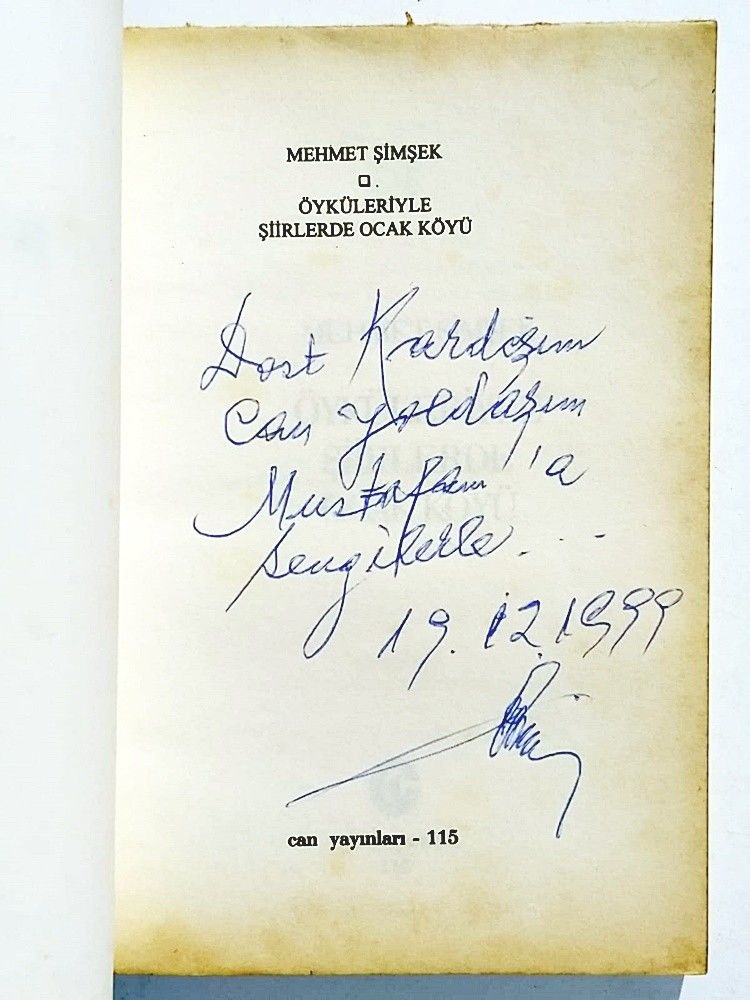 MEHMET ŞİMŞEK
ÖYKÜLERİYLE
ŞİİRLERDE OCAK KÖYÜ
Dost Kardeşim
Can yoldaşım
Mustafam'a
Sevgilerle...
19.12.1999
can yayınları - 115